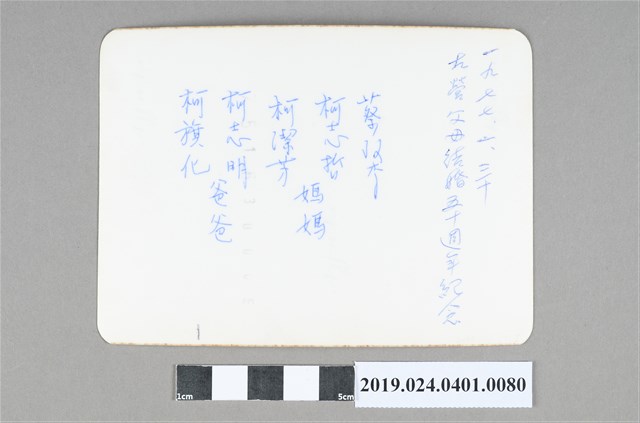 一九七七、六、三十
左營父母結婚五十週年紀念
蔡阿李
柯志哲
媽媽
柯潔芳
柯志明
爸爸
柯旗化
1cm
5cm
2019.024.0401.0080